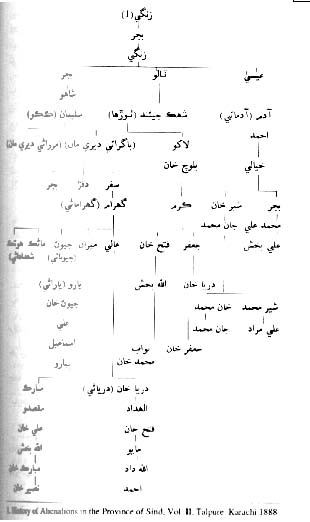 زنگي (1)
بجر
زنگي
عيسيٰ ٽالو بجر
شاهو
آدم (آدماڻي) شهڪ جيئند (لوڙها) سليمان (ڪڪو)
احمد لاکو (باگراڻي ديري مان) (مرواڻي ديري مان)
خيالي بلوچ خان
سفر دفڙ بجر
بجر شير خان ڪرم گهرام (گهراماڻي)
محمد علي جان محمد
علي بخش جعفر فتح خان عالي ميران جيون مانڪ هوتڪ
(جيوناڻي)
دريا خان الله بخش يارو (ياراڻي)
شير محمد خان محمد جيون خان
علي مراد جان محمد علي
جعفر خان نواب اسماعيل
محمد خان يارو
دريا خان (درياڻي) مبارڪ
الهداد مقصدو
فتح خان علي خان
مابو الله بخش
الله داد مبارڪ خان
احمد نصير خان
1. History of Alienations in the Province of Sind, Vol II. Talpure Karachi 1888